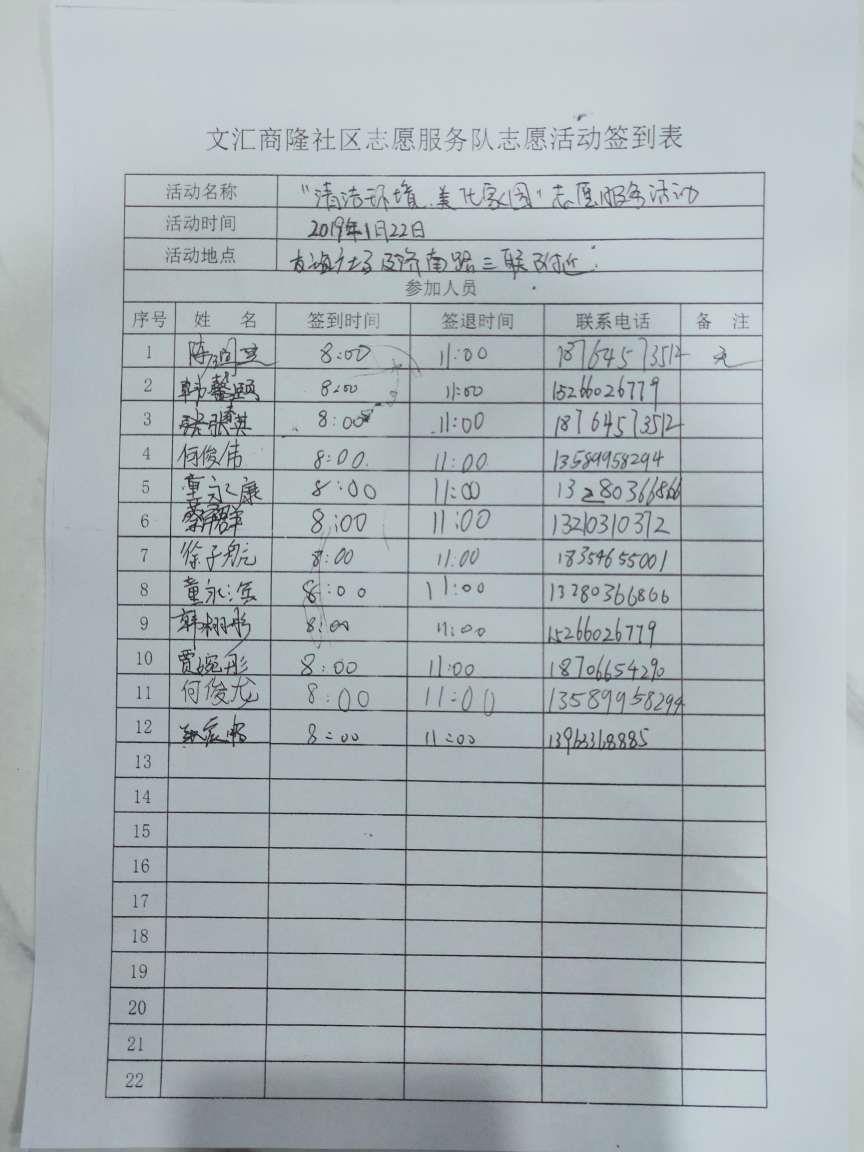 文汇商隆社区志愿服务队志愿活动签到表
活动名称 “清洁环境、美化家园”志愿服务活动
活动时间 2019年1月22日
活动地点 友谊广场及济南路三联附近
参加人员
序号 姓 名 签到时间 签退时间 联系电话 备 注
1 陈 8:00 11:00 18764573512 无
2 韩馨 8:00 11:00 15266026779
3 英 8:00 11:00 18764573512
4 何俊伟 8:00 11:00 13589958294
5 董永康 8:00 11:00 13280366866
6 群 8:00 11:00 13210310372
7 徐子航 8:00 11:00 18354655001
8 董永 8:00 11:00 13280366866
9 韩栩彤 8:00 11:00 15266026779
10 贾婉彤 8:00 11:00 18706654290
11 何俊龙 8:00 11:00 13589958294
12 8:00 11:00 13963368885
13
14
15
16
17
18
19
20
21
22